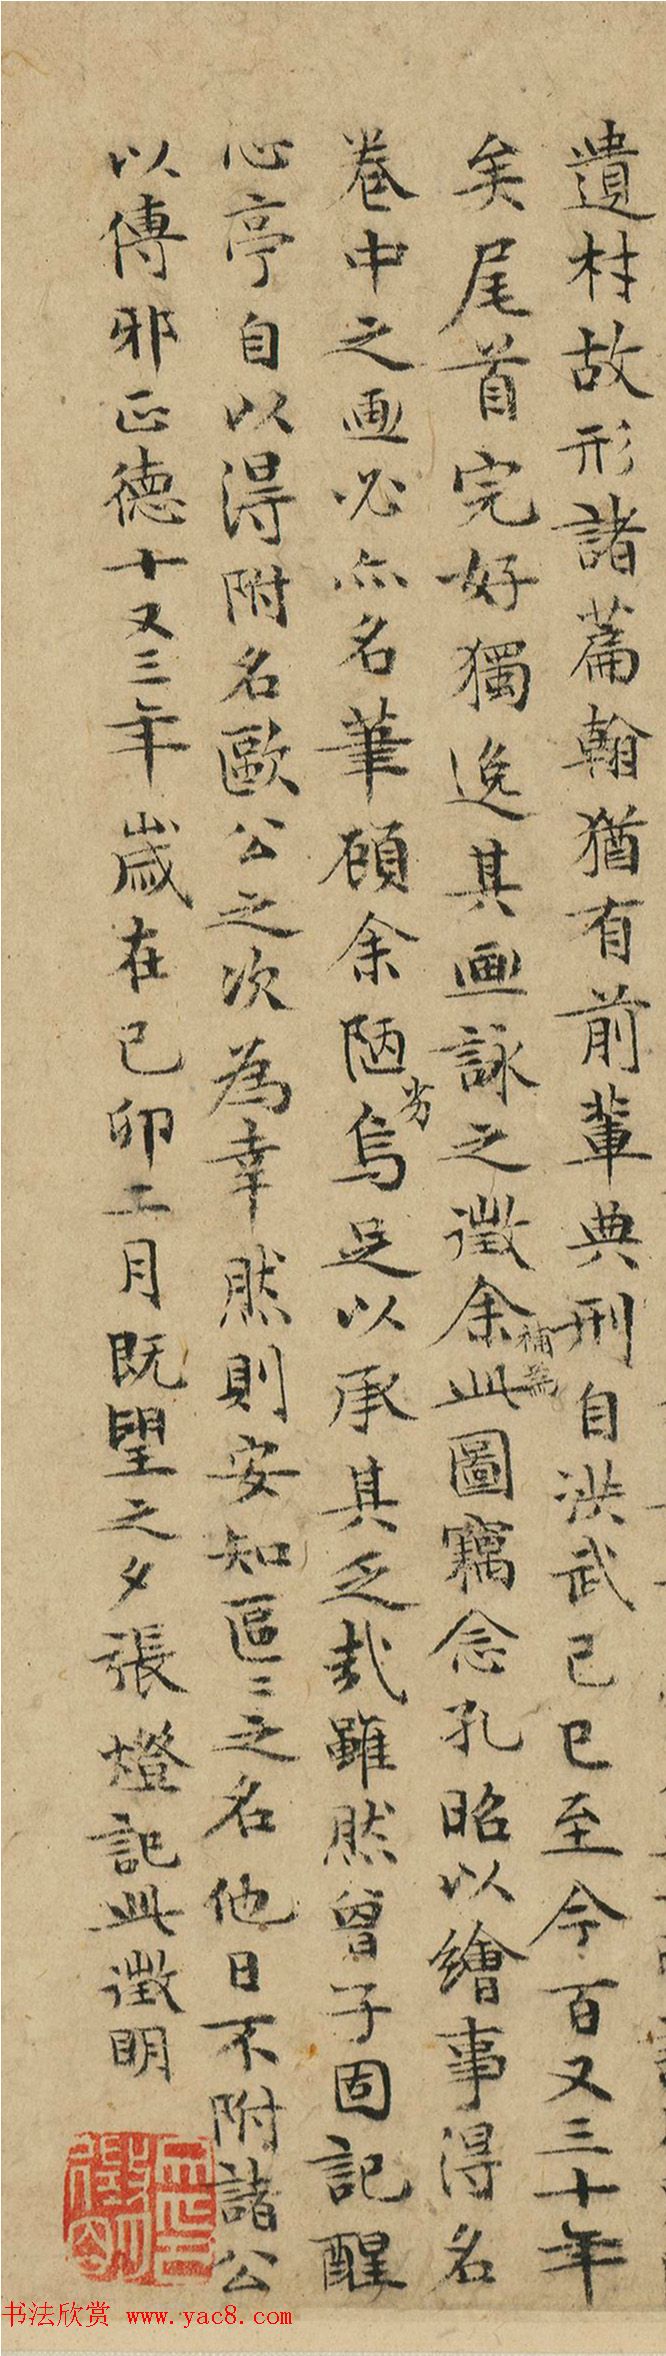 遺材故形諸篇翰猶有前輩典刑自洪武己巳至今百又三十年
矣尾首完好獨逸其画詠之徵余補爲此圖竊念孔昭以繪事得名
卷中之画必亦名筆顧余陋劣烏足以承其乏哉雖然曾子固記醒
心亭自以得附名歐公之次為幸然則安知區〻之名他日不附諸公
以傳邪正德十又三年歲在己卯二月既望之夕張燈記此徵明
徵明
书法欣赏 www.yac8.com